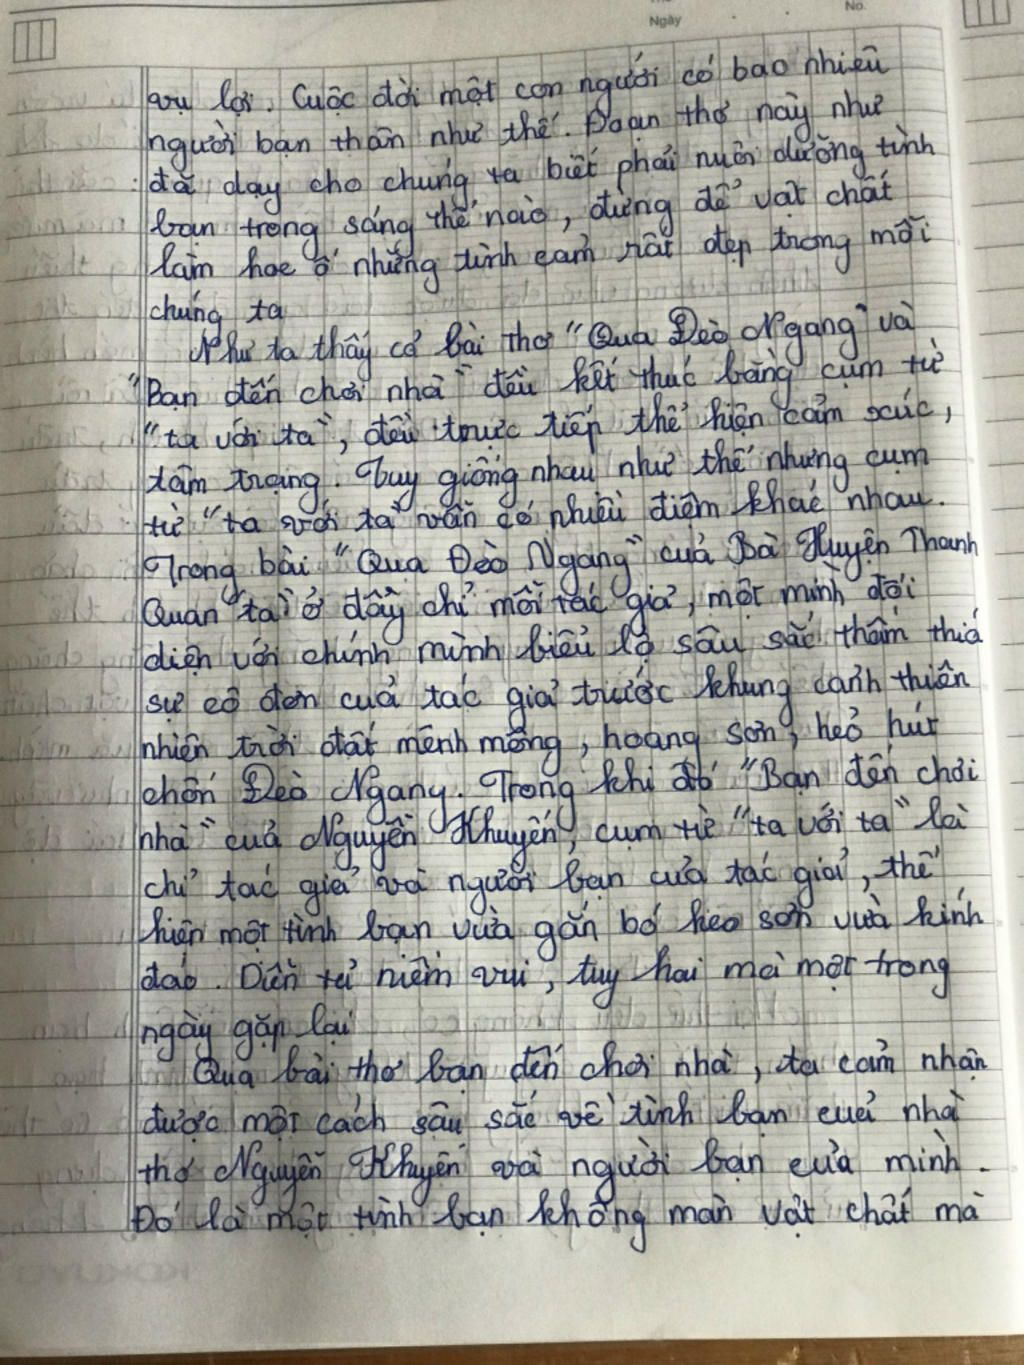 Ngày
No.
vụ lợi. Cuộc đời một con người có bao nhiêu
người bạn thân như thế. Đoạn thơ này như
đã dạy cho chúng ta biết phải nuôi dưỡng tình
bạn trong sáng thế nào, đừng để vật chất
làm hoe ố những tình cảm rất đẹp trong mỗi
chúng ta
Như ta thấy cả bài thơ "Qua Đèo Ngang" và
"Bạn đến chơi nhà" đều kết thúc bằng cụm từ
"ta với ta", đều trực tiếp thể hiện cảm xúc,
tâm trạng. Tuy giống nhau như thế nhưng cụm
từ "ta với ta" vẫn có nhiều điểm khác nhau.
Trong bài "Qua Đèo Ngang" của Bà Huyện Thanh
Quan "ta" ở đây chỉ mỗi tác giả, một mình đối
diện với chính mình biểu lộ sâu sắc thấm thiá
sự cô đơn của tác giả trước khung cảnh thiên
nhiên trời đất mênh mông, hoang sơn, heỏ hút
chốn Đèo Ngang. Trong khi đó "Bạn đến chơi
nhà" của Nguyễn Khuyến, cụm từ "ta với ta" là
chỉ tác giả và người bạn của tác giả, thể
hiện một tình bạn vừa gắn bó keo sơn vừa kính
đáo. Diễn tả niềm vui, tuy hai mà một trong
ngày gặp lại
Qua bài thơ bạn đến chơi nhà, ta cảm nhận
được một cách sâu sắc về tình bạn của nhà
thơ Nguyễn Khuyến và người bạn của mình.
Đó là một tình bạn không màn vật chất mà